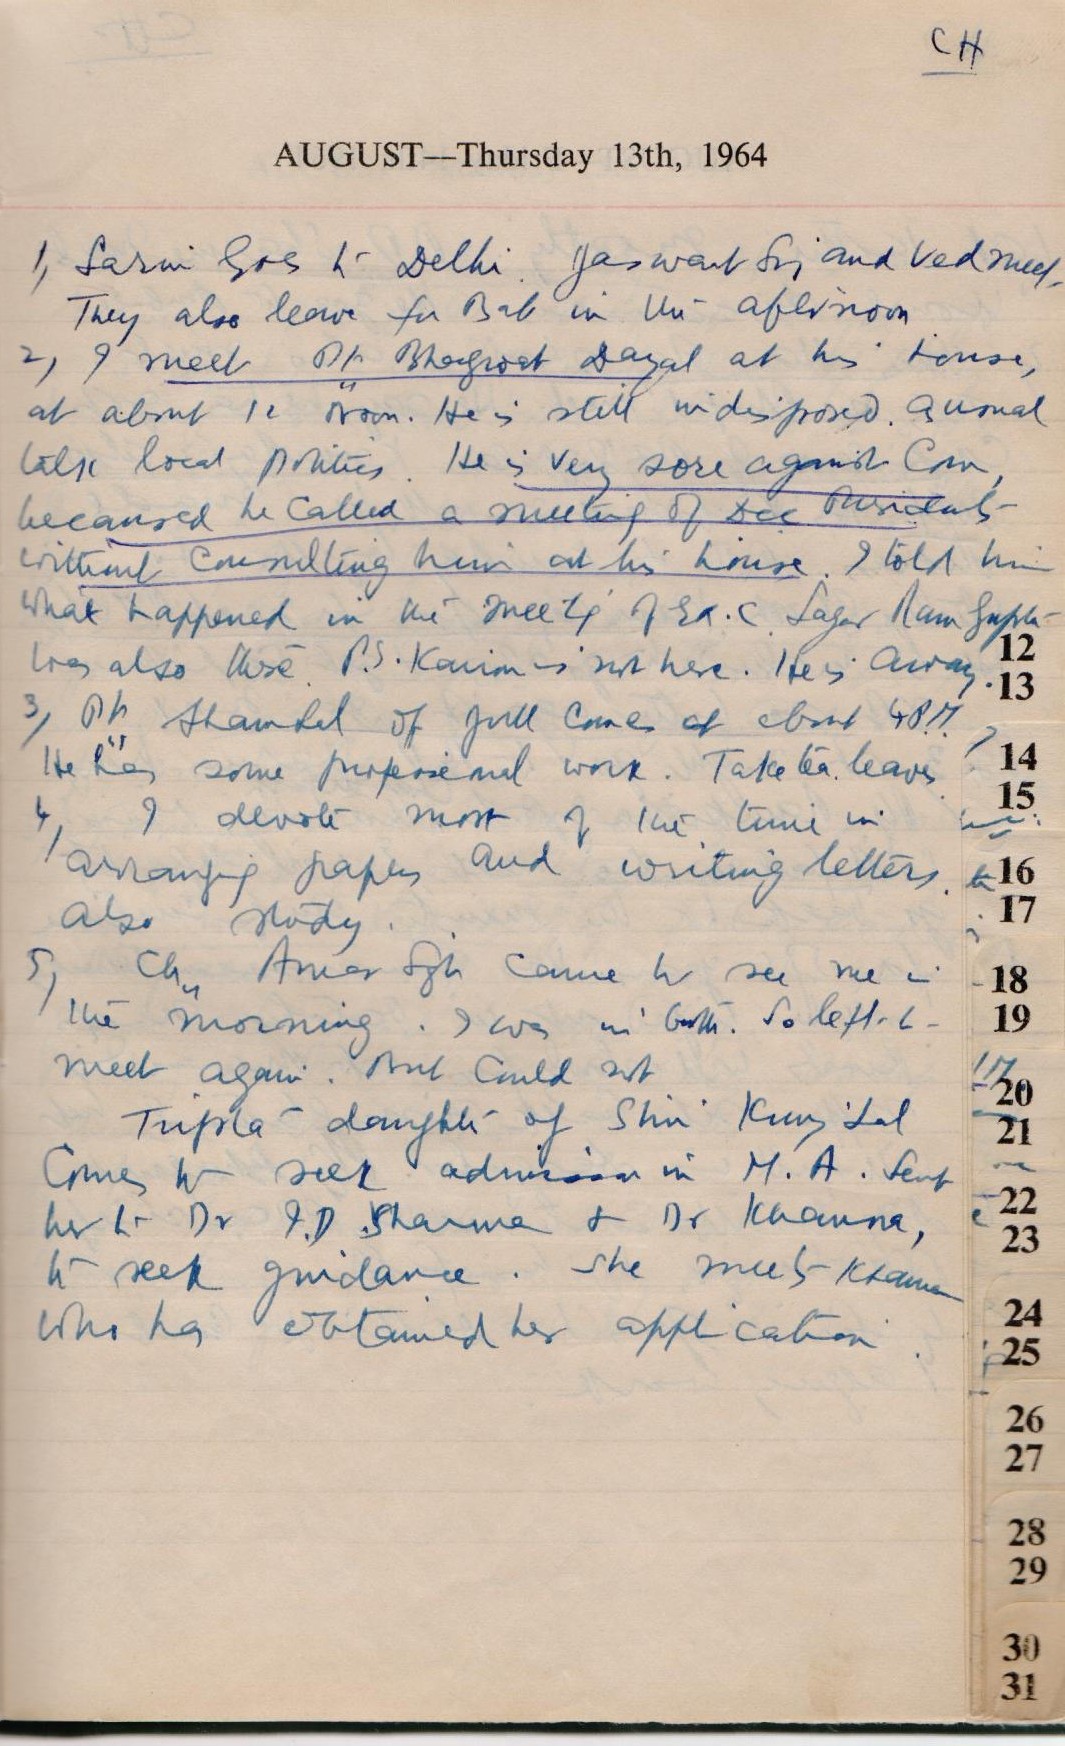 CH
AUGUST—Thursday 13th, 1964
1, Sarin Goes to Delhi. Jaswant Sing and Ved meet,
They also leave for in the afternoon
2, I meet Pt Bhagwat Dayal at his house,
at about 12 noon. He is still indisposed.
talk local politics. He is very sore against Com,
becaused he Called a meeting of Dcc Presidents
without Consulting him at his house. I told him
what happened in the meetg of Ex. C. Sagar Ram Gupta
was also there. P.S. is not here. He is away.
12
13
3, Pt Sham Lal of Comes at about 4 P.M.
He has some professional work. Take tea. leaves
14
15
4, I devote most of the time in
arranging papers and writing letters.
16
also study.
17
5, Ch, Amar Sgh came to see me in
18
the morning. I was in bath. So left to
19
meet again. But Could not
20
Tripta daughter of Shri Kunj Lal
21
Comes to seek admission in M. A. Sent
22
her to Dr I.D. Sharma & Dr Khanna,
23
to seek guidance. She meets Khanna
24
who has obtained her application.
25
26
27
28
29
30
31